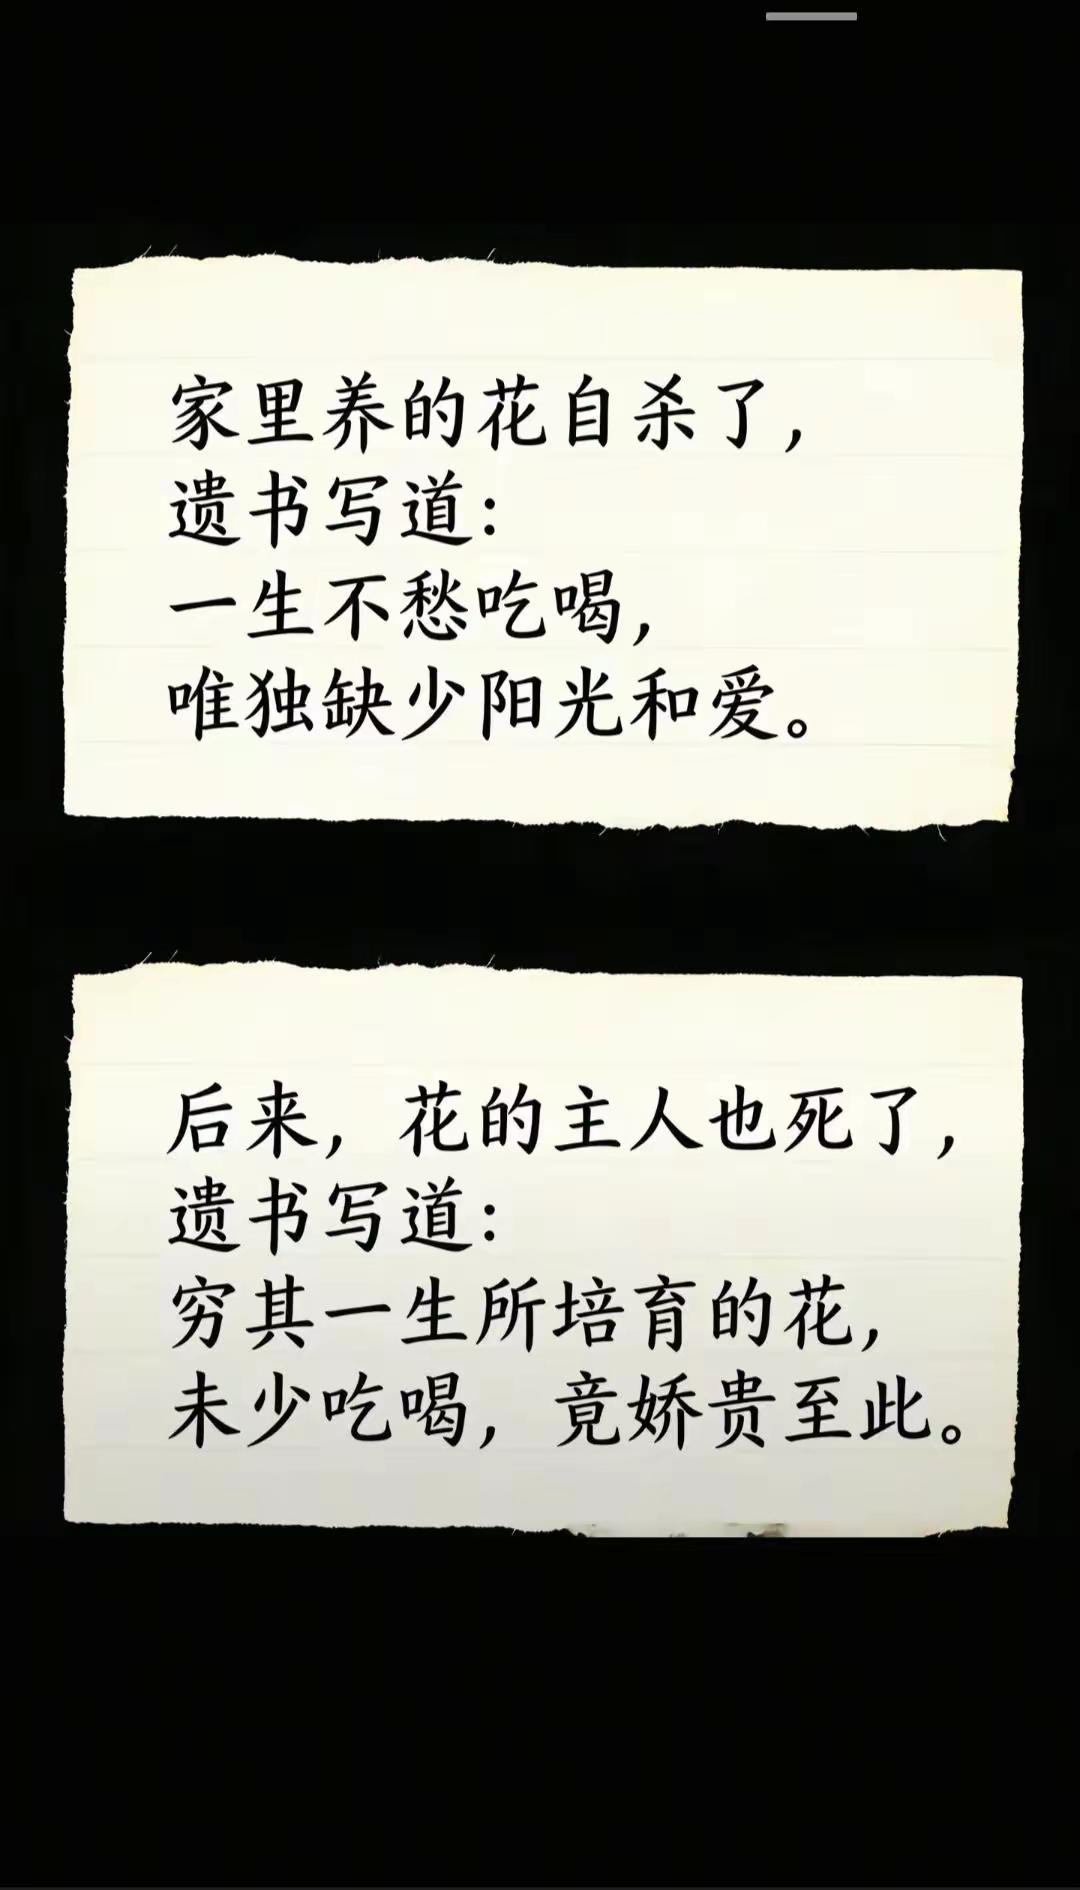 家里养的花自杀了，
遗书写道：
一生不愁吃喝，
唯独缺少阳光和爱。
后来，花的主人也死了，
遗书写道：
穷其一生所培育的花，
未少吃喝，竟娇贵至此。